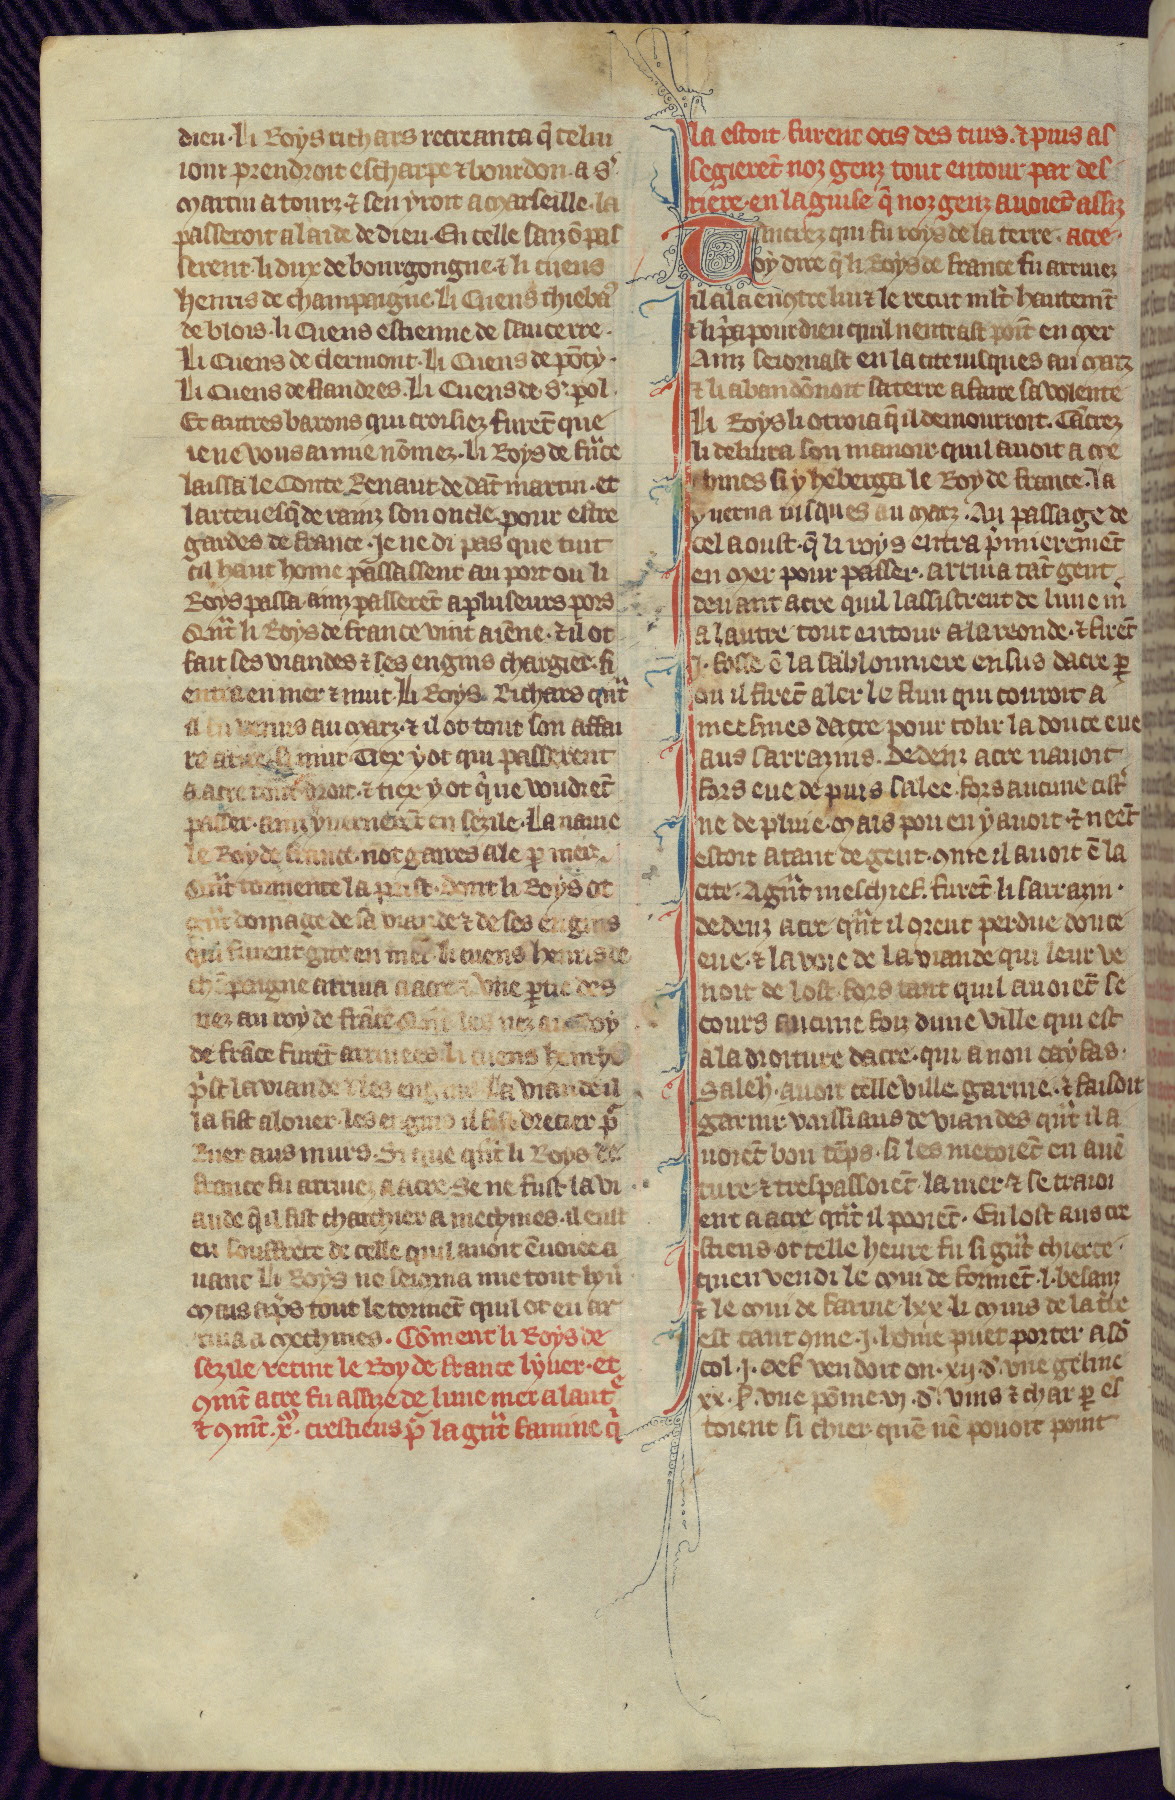 dieu. Li Roys richars recreanta q̃ celui
iour prendroit escharpe ⁊ bourdon. a s.
Martin a tourz. ⁊ sen yroit a Marseille. la
passeroit a laide de dieu. En celle saizõ pas
serent. li dux de bourgongne. ⁊ li cuens
henris de champaigne. Li Cuens thiebaꝰ
de blois. li Cuens estienne de sancerre.
Li Cuens de clermont. Li Cuens de põty.
Li Cuens de flandres. Li Cuens de s. pol.
Et autres barons qui croisiez furẽt que
ie ne vous ai mie nõmez. Li Roys de frãce
laissa le Conte Renaut de dãt martin. et
larceuesq̃ de rainz son oncle. pour estre
gardes de france. Je ne di pas que tuit
cil haut home passassent au port ou li
Roys passa. ainz passerẽt a pluseurs pors
Qũt li Roys de france vint a ienne. ⁊ il ot
fait ses viandes ⁊ ses engins chargier. si
entra en mer ⁊ mut. Li Roys Richars qũt
il fu venus au Marz. ⁊ il ot tout son affai
re si mut. Tiex y ot qui passerent
a acre tout droit. ⁊ tiex y ot q̃ ne voudrẽt
passer. ainz yuernerẽt en sezile. La nauie
le Roy de france. not gaires ale p mer.
Qũt tormente la prist. dont li Roys ot
gũt domage de sa viande ⁊ de ses engins
qui furent gite en mer. li cuens henris de
chãpaigne arriua a acre ⁊ vne ptie des
nez au roy de frãce Qũt les nez au Roy
de frãce furẽt arriuees li cuens henris
p̃st la viande ⁊ les engins. La viande il
la fist alouer. les engins il fist drecier p̃
ruer aus murs. Si que qũt li Roys de
france fu arriuez a acre. Se ne fust la vi
ande q̃ il fist charchier a mechines. il eust
eu souffrete de celle quil auoit ẽuoiee a
uant. Li Roys ne seiorna mie tout lyũ
Mais aps̃ tout le tormẽt quil ot eu ar
riua a Mechines. Cõment li Roys de
sezile retint le Roy de france lyuer. et
Qmẽt acre fu assize de lune mer a lautᵉ
⁊ Qmẽt .xᵐ. crestiens p̃ la gũt famine q̃
la estoit furent ocis des turs. ⁊ puis as
segierẽt noz genz tout entour par des
riere. en la guise q̃ noz genz auoiẽt assiz
Tancrez qui fu roys de la terre. acre.
oy dire q̃ li Roys de france fu arriuez
il ala encõtre lui ⁊ le recut ml̃t hautemẽt
⁊ li p̃a pour dieu quil nentrast poĩt en Mer
Ainz seiornast en la cite iusques au Marz
⁊ li abandõnoit sa terre a faire sa volente
Li Roys li otroia q̃ il demourroit. Tãcrez
li deliura son manoir. quil auoit a me
chines si y heberga le Roy de france. la
yuerna iusques au Marz. Au passage de
cel aoust. q̃ li roys entra p̃mierement
en Mer pour passer. arriua tãt gent
deuant acre quil lassistrent de lune m̃
a lautre tout entour a la reonde. ⁊ firẽt
.j. fosse ẽ la sablonniere ensus dacre p
ou il firẽt aler le flun qui couroit a
meesmes dacre pour tolir la douce eue
aus sarrazins. Dedenz acre nauoit
fors eue de puis salee. fors aucune cist̃
ne de pluie. Mais pou en y auoit. ⁊ neẽt
estoit a tant de gent. Qme il auoit ẽ la
cite. A gũt meschief furẽt li sarrazin.
dedenz acre. qũt il orent perdue douce
eue. ⁊ la voie de la viande qui leur ve
noit de lost. fors tant quil auoiẽt se
cours aucune foiz dune ville qui est
a la droiture dacre. qui a non cayfas.
Saleh. auoit celle ville garnie. ⁊ faisoit
garnir vaissiaus de viandes qũt il a
uoiẽt bon tẽps. si les metoiẽt en auẽ
ture. ⁊ trespassoiẽt. la mer ⁊ se traioi
ent a acre qũt il pooiẽt. En lost aus cre
stiens ot telle heure fu si gũt chierte.
quen vendi le mui de forment .l. besanz
⁊ le mui de farine lxx. li muis de la tr̃e
est tant Qme .j. hõme puet porter a sõ
col. j. oef vendoit on .xij. đ. vne geline
xx. s̃. vne põme .vj. đ. vins ⁊ char p es
toient si chier. quẽ nẽ pouoit point